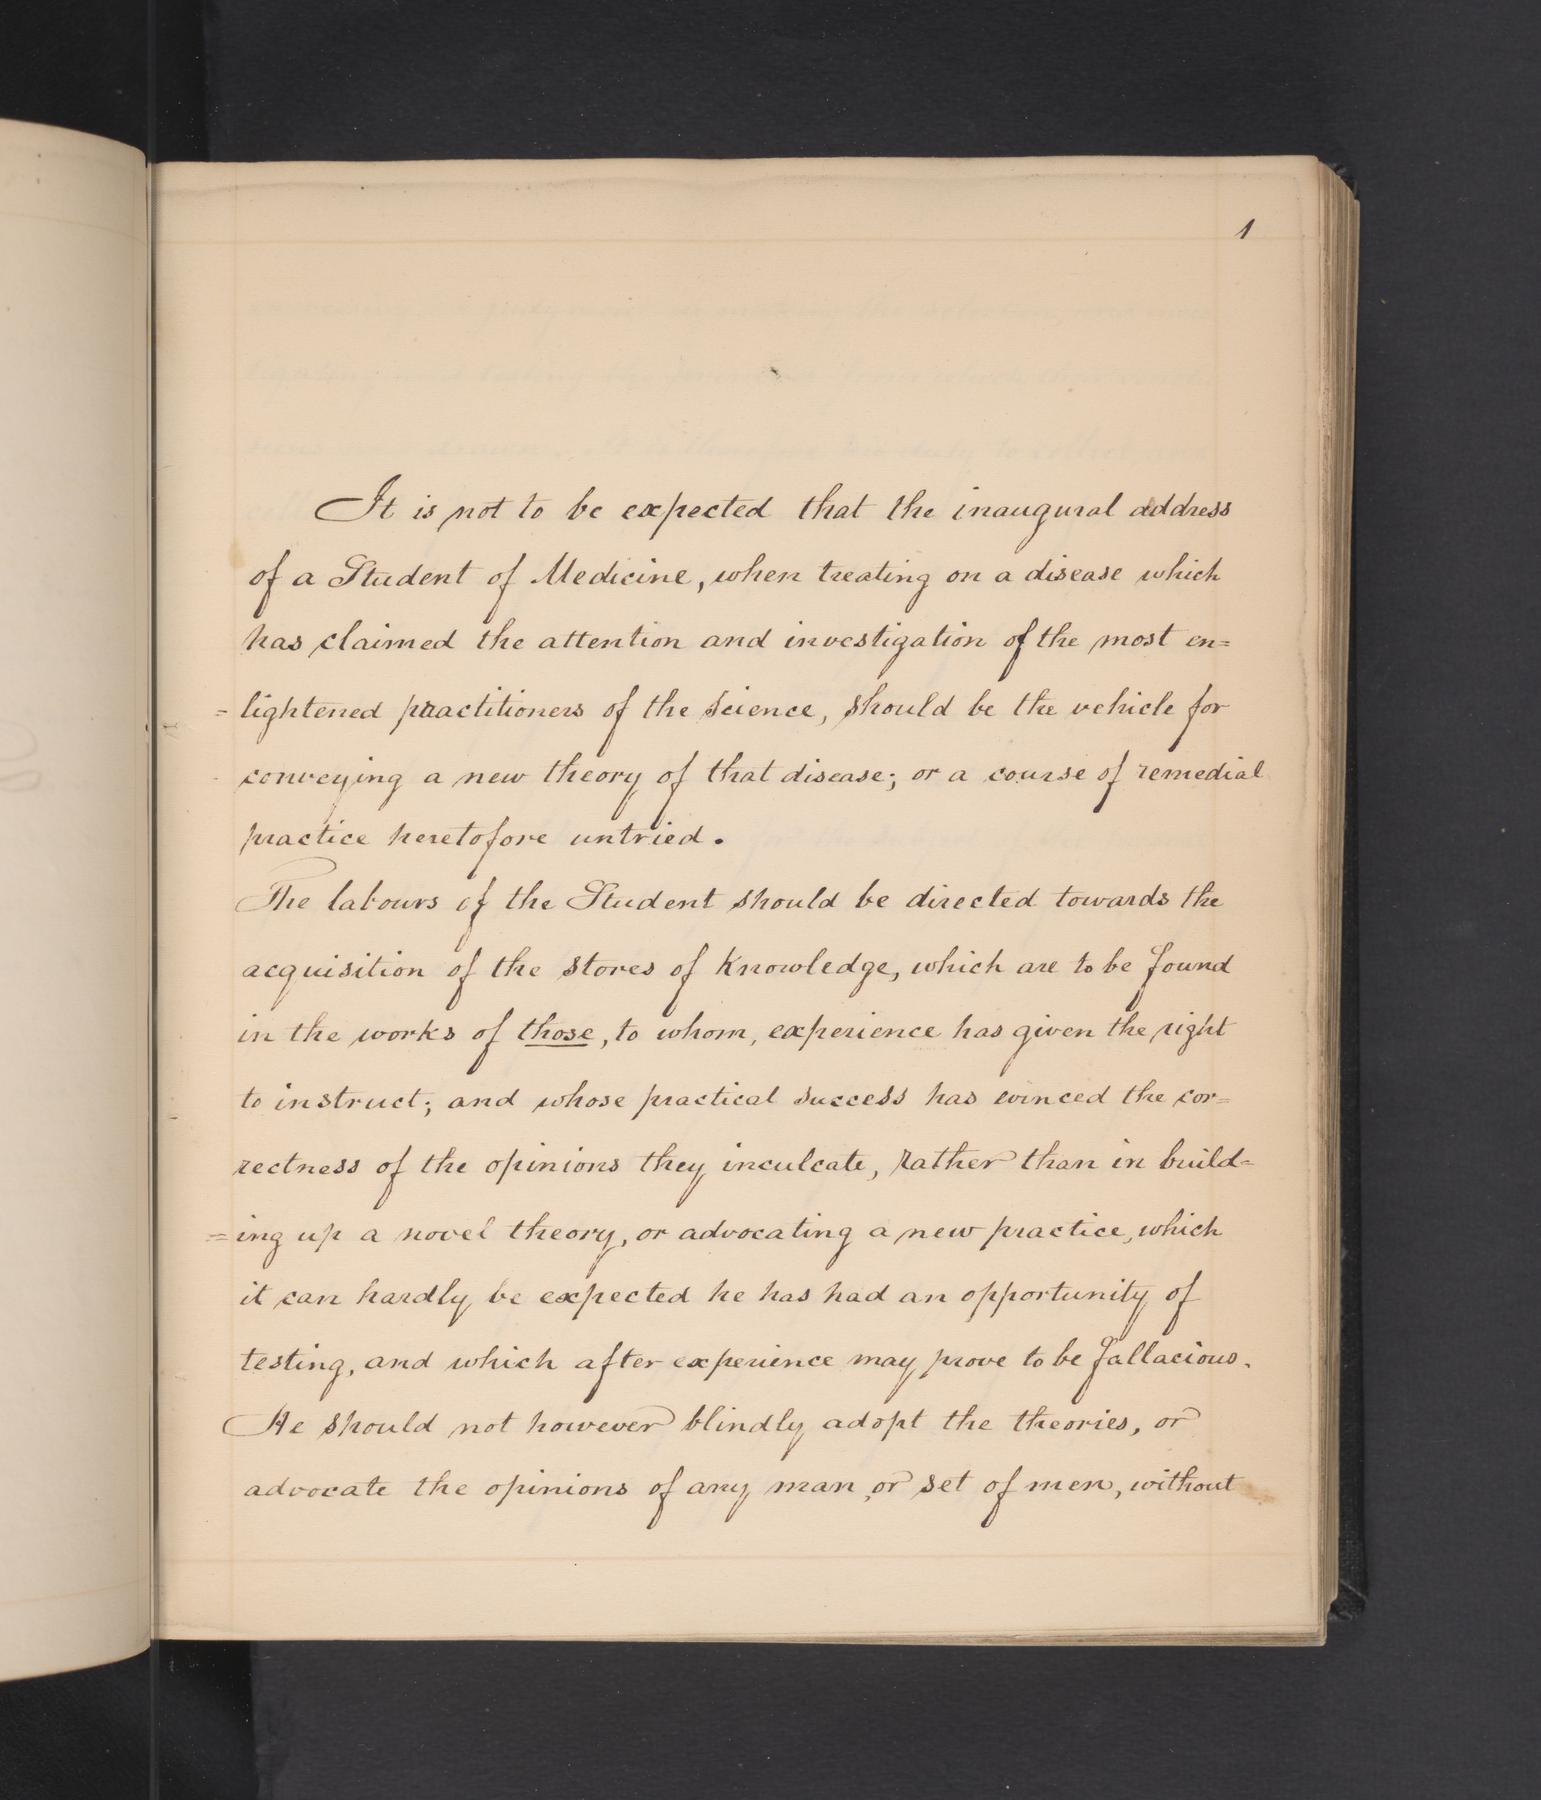 1
It is not to be expected that the inaugural address
of a Student of Medicine, when treating on a disease which
has claimed the attention and investigation of the most en=
=lightened practitioners of the science, should be the vehicle for
conveying a new theory of that disease; or a course of remedial
practice heretofore untried.
The labours of the Student should be directed towards the
acquisition of the stores of Knowledge, which are to be found
in the works of those, to whom, experience has given the right
to instruct; and whose practical success has evinced the cor=
rectness of the opinions they inculcate, rather than in build=
=ing up a novel theory, or advocating a new practice, which
it can hardly be expected he has had an opportunity of
testing, and which after experience may prove to be fallacious.
He should not however blindly adopt the theories, or
advocate the opinions of any man, or set of men, without